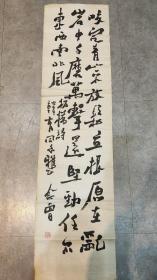 咬定青山不放鬆立根原在亂
岩中千磨萬擊還堅勁任爾
東西南北風
板橋詩